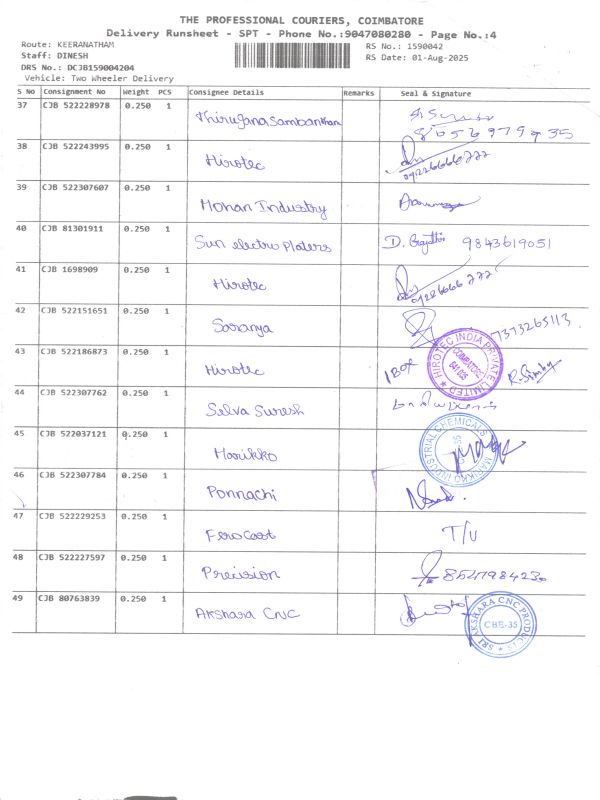 THE PROFESSIONAL COURIERS, COIMBATORE
Delivery Runsheet - SPT - Phone No.:9047080280 - Page No.:4
Route: KEERANATHAM RS No.: 1590042
Staff: DINESH RS Date: 01-Aug-2025
DRS No.: DCJB159004204
Vehicle: Two Wheeler Delivery
S No Consignment No Weight PCS Consignee Details Remarks Seal & Signature
37 CJB 522228978 0.250 1 Thirugana Sambantham
38 CJB 522243995 0.250 1 Hirotec
39 CJB 522307607 0.250 1 Mohan Industry
40 CJB 81301911 0.250 1 Sun electro platers D. Gayathri 9843619051
41 CJB 1698909 0.250 1 Hirotec
42 CJB 522151651 0.250 1 Saranya 7373265113.
43 CJB 522186873 0.250 1 Hirotec 1 Box HIROTEC INDIA PRIVATE LIMITED COIMBATORE 641 035
44 CJB 522307762 0.250 1 Selva Suresh
45 CJB 522037121 0.250 1 Marikko MARIKKO INDUSTRIAL CHEMICALS
46 CJB 522307784 0.250 1 Ponnachi
47 CJB 522229253 0.250 1 Fero Cast T/U
48 CJB 522227597 0.250 1 Precision
49 CJB 80763839 0.250 1 Akshara CNC SRI AKSHARA CNC PRODUCTS CBE-35